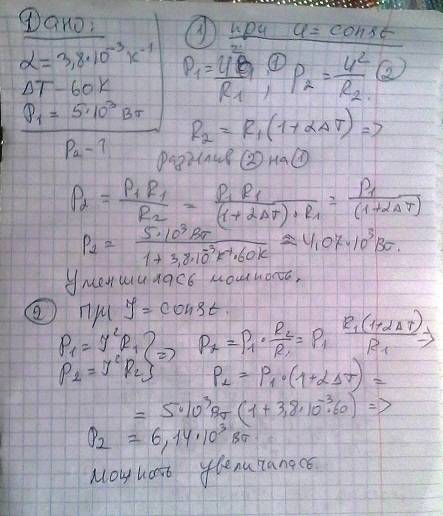 Дано:
α = 3,8·10⁻³ K⁻¹
ΔT - 60K
P₁ = 5·10³ Вт
P₂ - ?
① при U = const
P₁ = U²/R₁ ①, P₂ = U²/R₂ ②
R₂ = R₁(1+αΔT) =>
разделив ② на ①
P₂ = P₁R₁/R₂ = P₁R₁/((1+αΔT)·R₁) = P₁/(1+αΔT)
P₂ = 5·10³Вт/(1+3,8·10⁻³K⁻¹·60K) ≈ 4,07·10³Вт.
Уменшилась мощность.
② при J = const.
P₁ = J²R₁
P₂ = J²R₂ } => P₂ = P₁·R₂/R₁ = P₁ R₁(1+αΔT)/R₁ =>
P₂ = P₁·(1+αΔT) =
= 5·10³Вт(1+3,8·10⁻³·60) =>
P₂ = 6,14·10³Вт.
Мощность увеличалась.